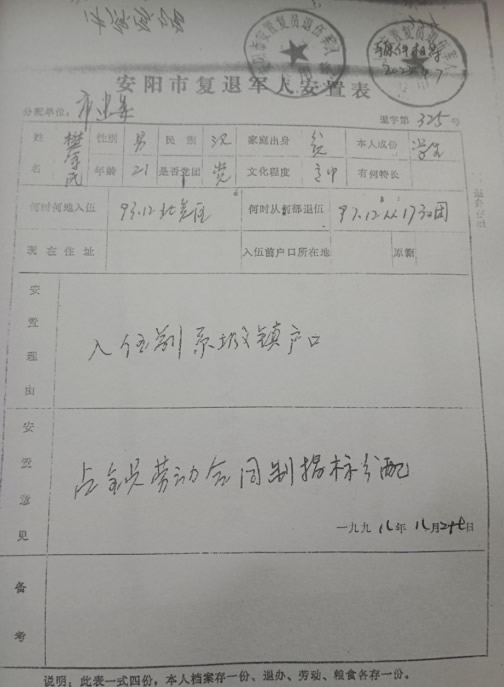 安阳市复退军人安置表
分配单位：市忠
退字第 325 号
姓名 樊学民 性别 男 民族 汉 家庭出身 贫 本人成份 学生
年龄 21 是否党团 党 文化程度 高中 有何特长
何时何地入伍 93.12 北关区 何时从何部退伍 97.12从
现在住址 入伍前户口所在地 原籍
安置理由
入伍前系城镇户口
安置意见
占全民劳动合同制指标分配
一九九八年 月 日
备考
说明：此表一式四份，本人档案存一份、退办、劳动、粮食各存一份。